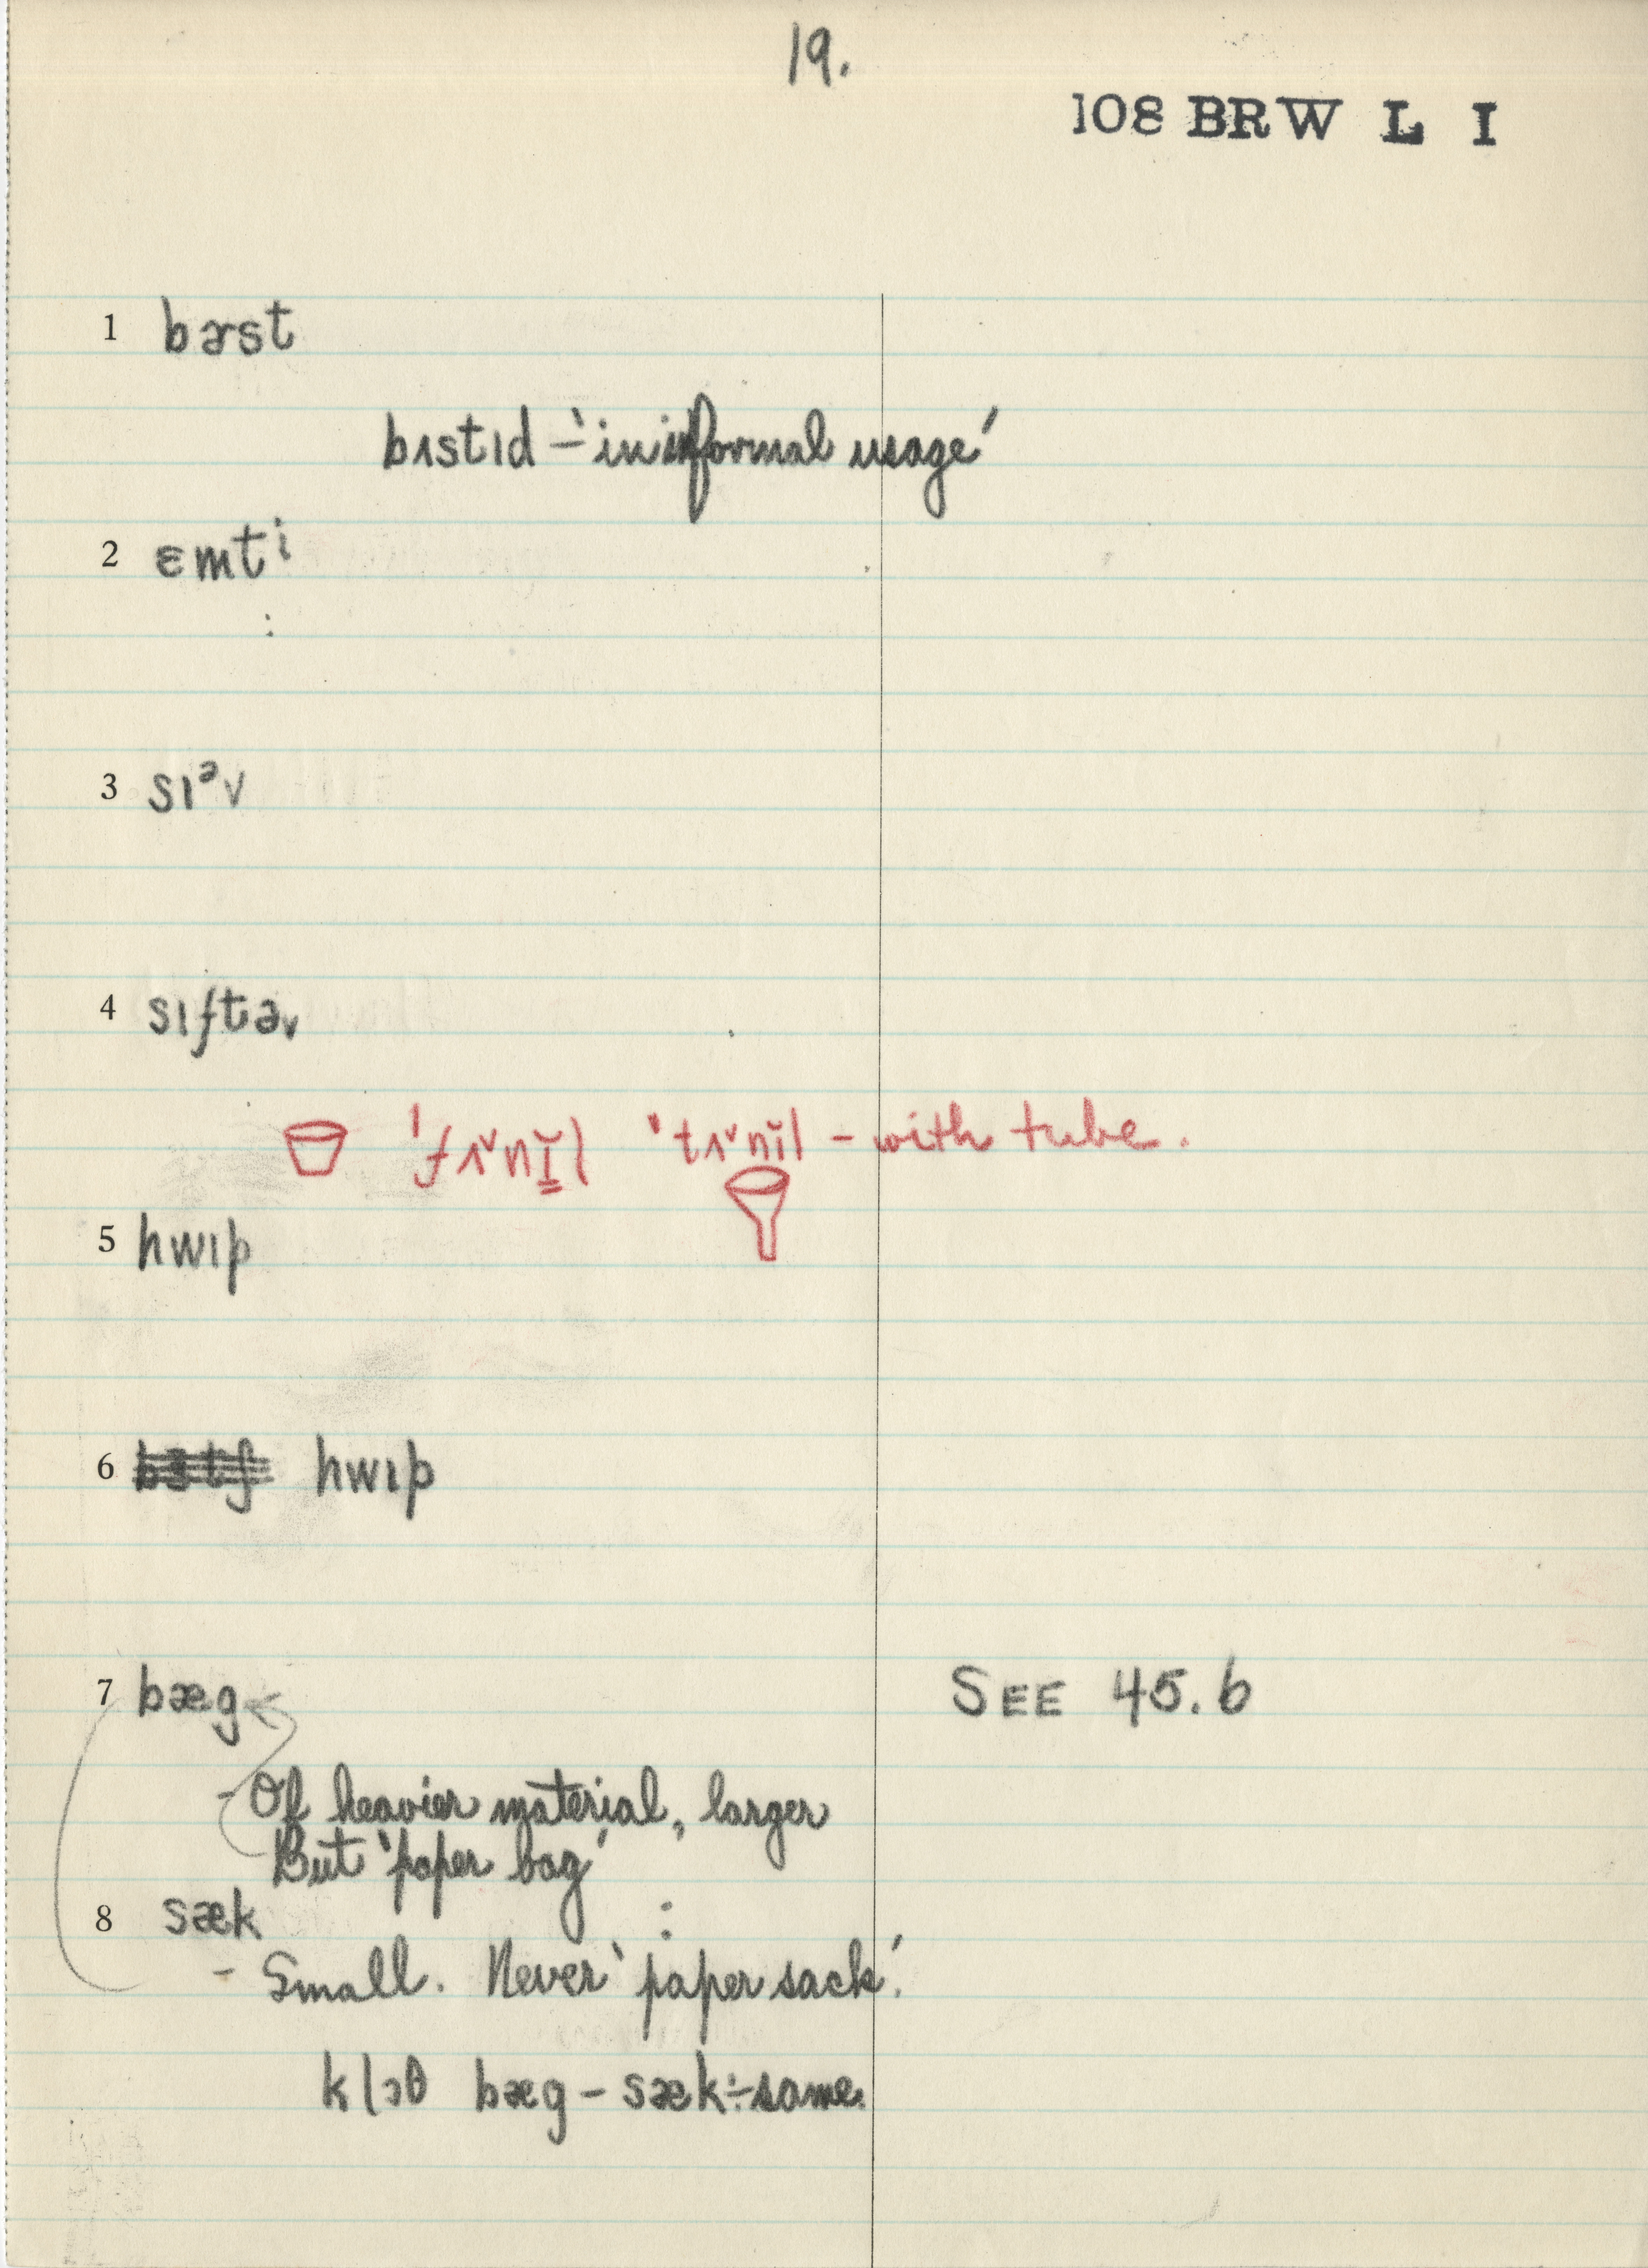 19.
108 BRW L I
1 bɚst
bɪstɪd – 'in informal usage'
2 ɛmtⁱ
3 sɪᵊv
4 sɪftə˅
'fʌ˅nɪ̆l 'tʌ˅nɪ̆l – with tube.
5 hwɪp
6 hwɪp
7 bæg SEE 45.6
- Of heavier material, larger
But 'paper bag'
8 sæk
- Small. Never 'paper sack'.
klɔθ bæg – sæk ÷ same